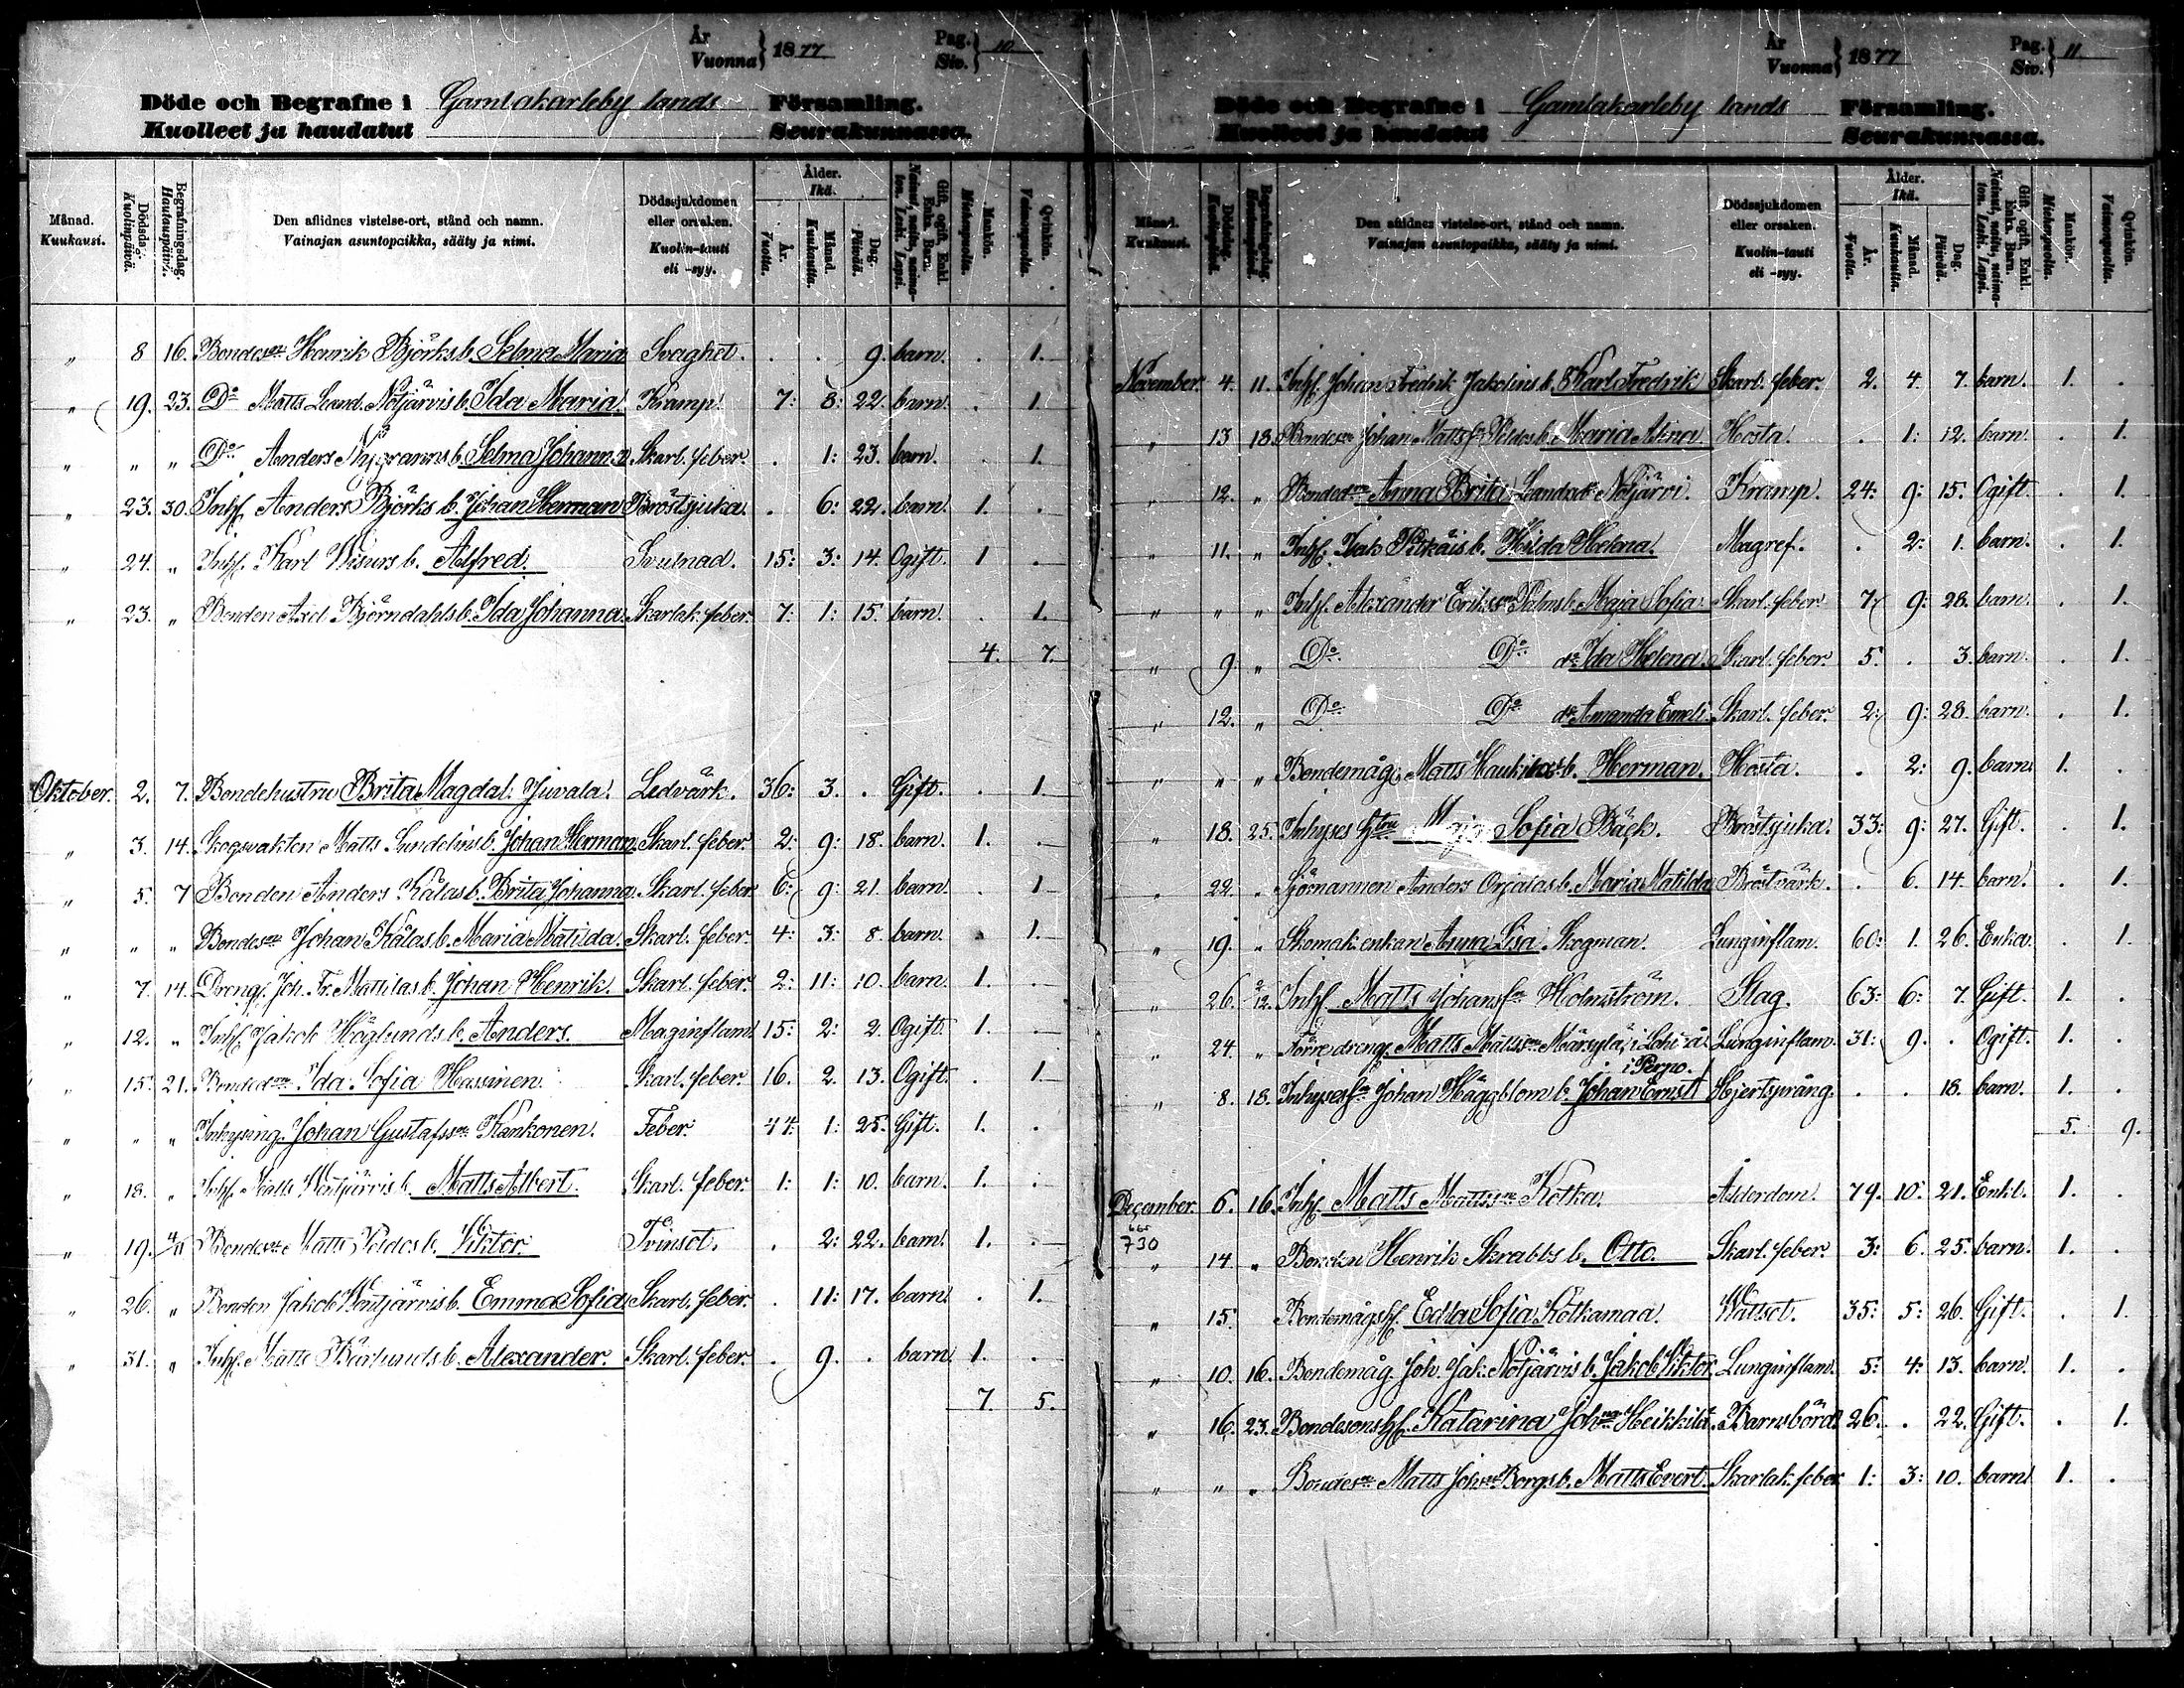 År
Vuonna } 1877
Pag.
Siv. } 10
Döde och Begrafne i Gamlakarleby lands Församling.
Kuolleet ja haudatut Seurakunnassa.
Månad. Kuukausi.
Dödsdag. Kuolinpäivä.
Begrafningsdag. Hautauspäivä.
Den aflidnes vistelse-ort, stånd och namn.
Vainajan asuntopaikka, sääty ja nimi.
Dödssjukdomen eller orsaken.
Kuolin-tauti eli -syy.
Ålder. Ikä.
År. Vuotta.
Månad. Kuukautta.
Dag. Päivää.
Gift, ogift, Enkl. Enka. Barn.
Nainut, naitu, naimaton. Leski. Lapsi.
Mankön. Miehenpuolta.
Qvinkön. Vaimonpuolta.
" 8 16. Bondeson Henrik Björks b. Selma Maria Svaghet. . . 9. barn. . 1.
" 19. 23. Do Matts Leand. Nötjärvis b. Ida Maria Kramp. 7: 8: 22. barn. . 1.
" " " Do Anders Nygranns b. Selma Johanna Skarl. feber. . 1: 23. barn. . 1.
" 23. 30. Inhs. Anders Björks b. Johan Herman Bröstsjuka. . 6: 22. barn. 1. .
" 24. " Inhs. Karl Wisurs b. Alfred. Svulnad. 15: 3: 14. Ogift. 1 .
" 23. " Bonden Axel Björndahls b. Ida Johanna Skarlak. feber. 7: 1: 15. barn. . 1.
4. 7.
Oktober. 2. 7. Bondehustru Brita Magdal. Juvala. Ledvärk. 36: 3. . Gift. . 1
" 3. 14. Skogsvakten Matts Sundelins b. Johan Herman Skarl. feber. 2: 9: 18. barn. 1. .
" 5. 7 Bonden Anders Kålas b. Brita Johanna Skarl. feber 6: 9: 21. barn. . 1
" " " Bondeson Johan Kålas b. Maria Matilda. Skarl. feber. 4: 3: 8. barn. . 1.
" 7. 14. Dreng. Joh. Fr. Mattilas b. Johan Henrik. Skarl. feber. 2: 11: 10. barn. 1. .
" 12. " Inhs. Jakob Höglunds b. Anders. Maginflam. 15: 2: 2. Ogift. 1. .
" 15. 21. Bondedon Ida Sofia Hassinen. Skarl. feber. 16. 2. 13. Ogift. . 1
" " " Inhysing. Johan Gustafsson Kankonen. Feber. 44. 1: 25. Gift. 1. .
" 18. " Inhs. Matts Wentjärvis b. Matts Albert. Skarl. feber. 1: 1: 10. barn. 1. .
" 19. 4/11 Bondeson Matts Poldos b. Viktor. Tvinsot. . 2: 22. barn. 1. .
" 26. " Bonden Jakob Wentjärvis b. Emma Sofia Skarl. feber. . 11: 17. barn. . 1.
" 31. " Inhs. Matts Kårlunds b. Alexander. Skarl. feber. . 9. . barn. 1. .
7. 5.
År
Vuonna } 1877
Pag.
Siv. } 11.
Döde och Begrafne i Gamlakarleby lands Församling.
Kuolleet ja haudatut Seurakunnassa.
Månad. Kuukausi.
Dödsdag. Kuolinpäivä.
Begrafningsdag. Hautauspäivä.
Den aflidnes vistelse-ort, stånd och namn.
Vainajan asuntopaikka, sääty ja nimi.
Dödssjukdomen eller orsaken.
Kuolin-tauti eli -syy.
Ålder. Ikä.
År. Vuotta.
Månad. Kuukautta.
Dag. Päivää.
Gift, ogift, Enkl. Enka. Barn.
Nainut, naitu, naimaton. Leski. Lapsi.
Mankön. Miehenpuolta.
Qvinkön. Vaimonpuolta.
November. 4. 11. Inhs. Johan Fredrik Jakolins b. Karl Fredrik Skarl. feber. 2. 4. 7. barn. 1. .
" 13 18. Bondeson Johan Mattsson Poldos b. Maria Alina Hosta. . 1: 12. barn. . 1.
" 12. " Bondedon Anna Brita Leandsdr Nötjärvi. Kramp. 24: 9: 15. Ogift. . 1.
" 11. " Inhs. Isak Pitkäis b. Hilda Helena. Magref. . 2: 1. barn. . 1.
" " " Inhs. Alexander Eriksson Palms b. Maja Sofia Skarl. feber. 7: 9: 28. barn. . 1.
" 9. " Do Do do Ida Helena. Skarl. feber. 5. . 3. barn. . 1.
" 12. " Do Do do Amanda Emeli. Skarl. feber. 2: 9: 28. barn. . 1.
" " " Bondemåg. Matts Haukilas b. Herman. Hosta. . 2: 9. barn. 1. .
" 18. 25. Inhyses hstru Maja Sofia Bäck. Bröstsjuka. 33: 9: 27. Gift. . 1.
" 22. " Sjömannen Anders Orjalas b. Maria Matilda Bröstvärk. . 6. 14. barn. . 1.
" 19. " Skomak. enkan Anna Lisa Skogman. Lunginflam. 60: 1. 26. Enka. . 1.
" 26. 2/12. Inhs. Matts Johansson Holmström. Slag. 63: 6: 7. Gift. 1. .
" 24. " Förre dreng. Matts Mattsson Märsylä, i Lohi-å Lunginflam. 31: 9. . Ogift. 1. .
i Perno.
" 8. 18. Inhyseson Johan Häggblom b. Johan Ernst Hjertspräng. . . 18. barn. 1. .
5. 9.
December. 6. 16. Inhs. Matts Mattsson Kotka. Ålderdom. 79. 10. 21. Enkl. 1. .
730
" 14. " Bonden Henrik Skrabbs b. Otto. Skarl. feber. 3: 6. 25. barn. 1. .
" 15. Bondemågshs. Edla Sofia Kotkamaa. Wattsot. 35: 5: 26. Gift. . 1.
" 10. 16. Bondemåg. Joh. Jak. Nötjärvis b. Jakob Viktor Lunginflam. 5: 4: 13. barn. 1. .
" 16. 23. Bondesonshs. Katarina Johna Heikkilä. Barnsbörd. 26. . 22. Gift. . 1.
" " " Bondeson Matts Johsson Borgs b. Matts Evert. Skarlak. feber 1: 3: 10. barn. 1. .